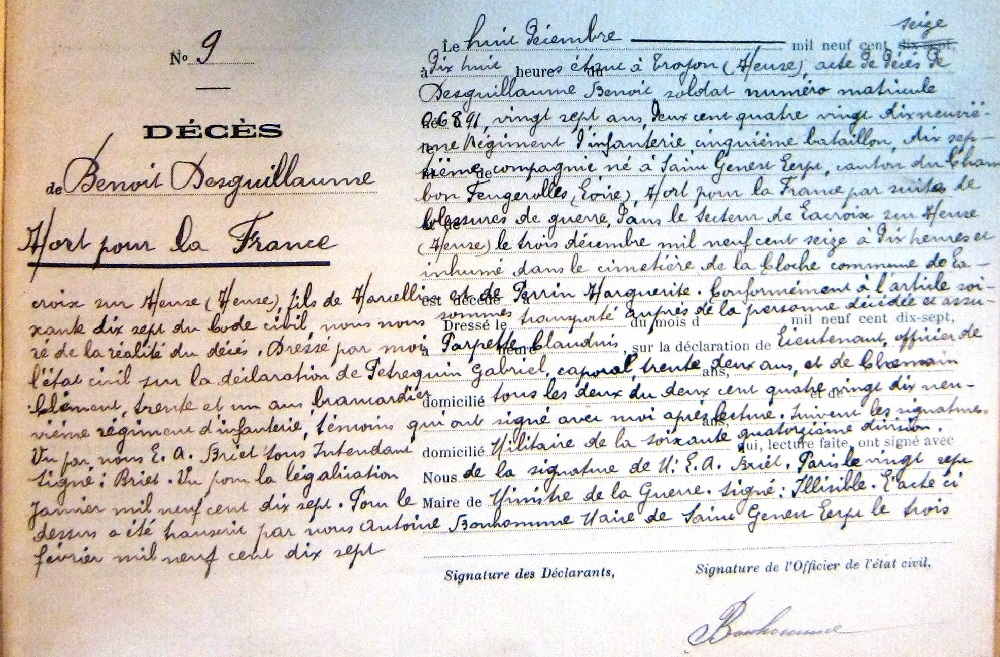 No 9
DÉCÈS
de Benoit Desguillaume
Mort pour la France
Le huit décembre mil neuf cent dix-sept, seize
à dix huit heures étant à Troyon (Meuse), acte de décès de
Desguillaume Benoit soldat numéro matricule
06891, vingt sept ans, deux cent quatre vingt dixneuviè-
me Régiment d'infanterie cinquième bataillon, dix sep-
tième compagnie né à Saint Genest Lerpt, canton du Cham
bon Feugerolles, Loire), Mort pour la France par suites de
blessures de guerre, dans le secteur de Lacroix sur Meuse
(Meuse) le trois décembre mil neuf cent seize à dix heures et
inhumé dans le cimetière de la Cloche commune de La-
croix sur Meuse (Meuse), fils de Marcellin et de Perrin Marguerite. Conformément à l'article soi-
xante dix sept du Code civil, nous nous sommes transporté auprès de la personne décédée et assu-
ré de la réalité du décès. Dressé par moi Parpette Claudius Lieutenant, officier de
l'état civil sur la déclaration de Pétrequin Gabriel, caporal trente deux ans, et de Chamain
Clément, trente et un ans, brancardier tous les deux du deux cent quatre vingt dix neu-
vième régiment d'infanterie, témoins qui ont signé avec moi après lecture. Suivent les signatures.
Vu par nous E. A. Briet sous Intendant Militaire de la soixante quatorzième division.
signé : Briet. Vu pour la légalisation de la signature de M. E. A. Briet. Paris le vingt sept
Janvier mil neuf cent dix sept. Pour le Ministre de la Guerre. signé : Illisible. L'acte ci
dessus a été transcrit par nous Antoine Bonhomme Maire de Saint Genest Lerpt le trois
février mil neuf cent dix sept
est décédé
Dressé le du mois d mil neuf cent dix-sept,
à heure sur la déclaration de
ans,
domicilié et de
ans,
domicilié qui, lecture faite, ont signé avec
Nous
Maire de
Signature des Déclarants, Signature de l'Officier de l'état civil,
Bonhomme